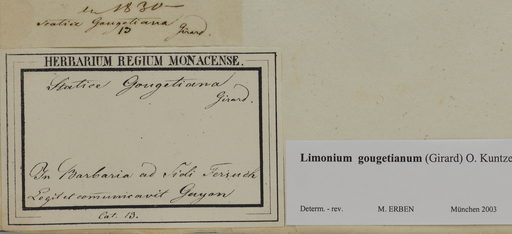 in 1830
Statice Gougetiana
13 Girard.
HERBARIUM REGIUM MONACENSE.
Statice Gougetiana
Girard.
In Barbaria ad Sidi Ferruch
Legit et com̄unicavit Guyon
Cat. 13.
Limonium gougetianum (Girard) O. Kuntze
Determ. - rev. M. ERBEN München 2003